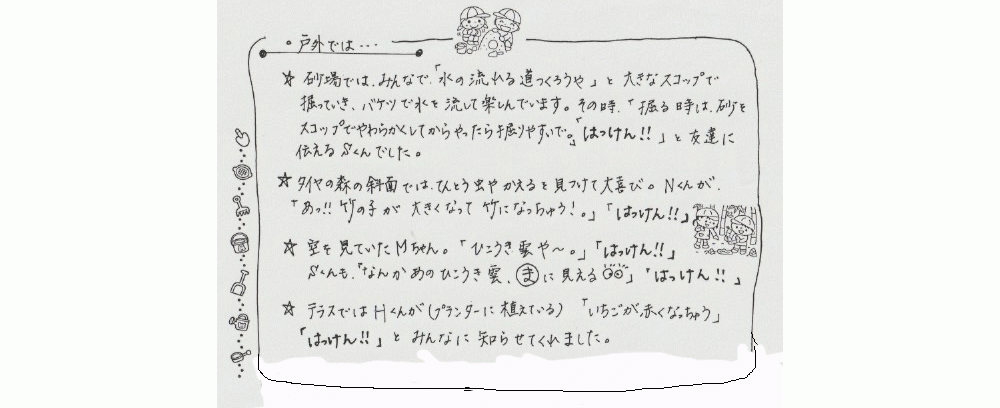 。戸外では・・・
☆ 砂場では、みんなで、「水の流れる道つくろうや」と大きなスコップで
掘っていき、バケツで水を流して楽しんでいます。その時、「掘る時は、砂を
スコップでやわらかくしてからやったら掘りやすいで。」「はっけん!!」と友達に
伝えるSくんでした。
☆ タイヤの森の斜面では、てんとう虫やかえるを見つけて大喜び。Nくんが、
「あっ!!竹の子が大きくなって竹になっちゅう!。」「はっけん!!」
☆ 空を見ていたMちゃん。「ひこうき雲や〜。」「はっけん!!」
Sくんも、「なんかあのひこうき雲、まに見える」「はっけん!!」
☆ テラスではHくんが(プランターに植えている)「いちごが赤くなっちゅう」
「はっけん!!」とみんなに知らせてくれました。